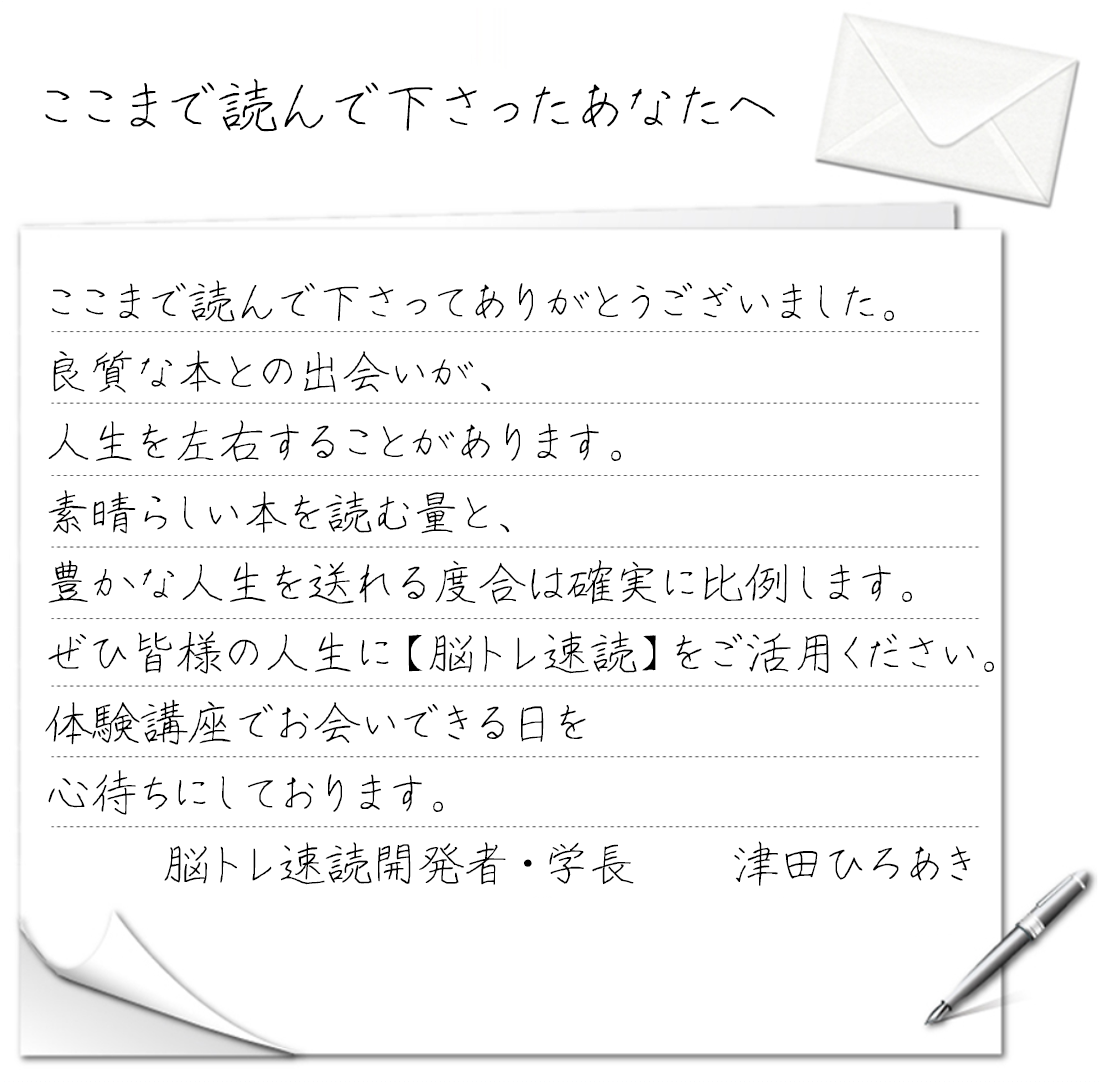 ここまで読んで下さったあなたへ
ここまで読んで下さってありがとうございました。
良質な本との出会いが、
人生を左右することがあります。
素晴らしい本を読む量と、
豊かな人生を送れる度合は確実に比例します。
ぜひ皆様の人生に【脳トレ速読】をご活用ください。
体験講座でお会いできる日を
心待ちにしております。
脳トレ速読開発者・学長 津田ひろあき